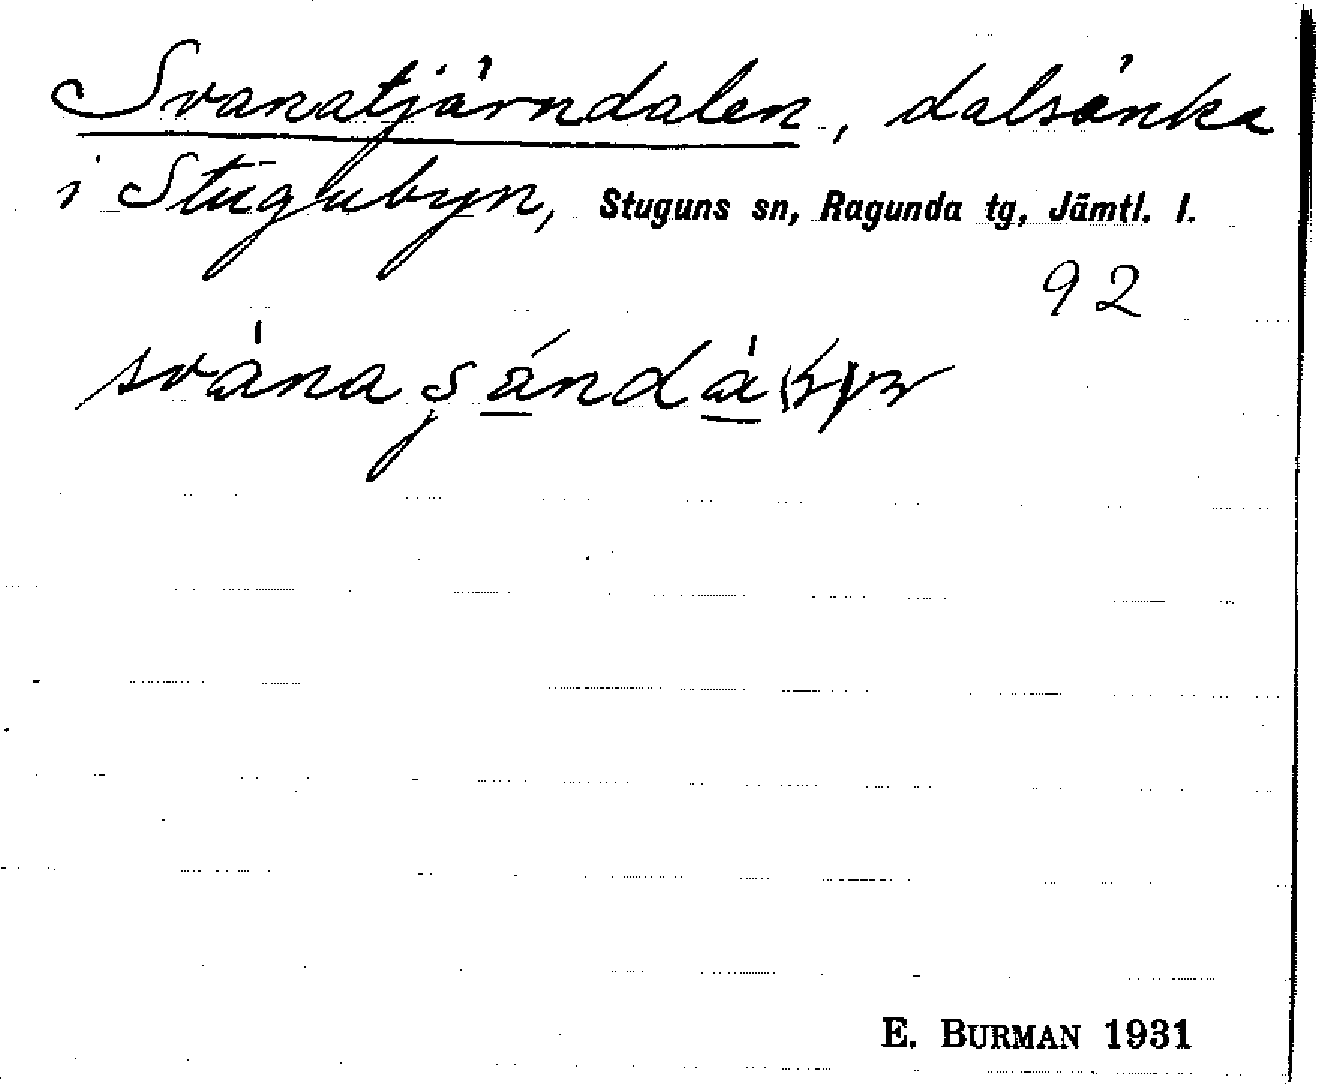 Svanatjärndalen, dalsänka
i Stugubyn, Stuguns sn, Ragunda tg, Jämtl. l.
92
E. BURMAN 1931